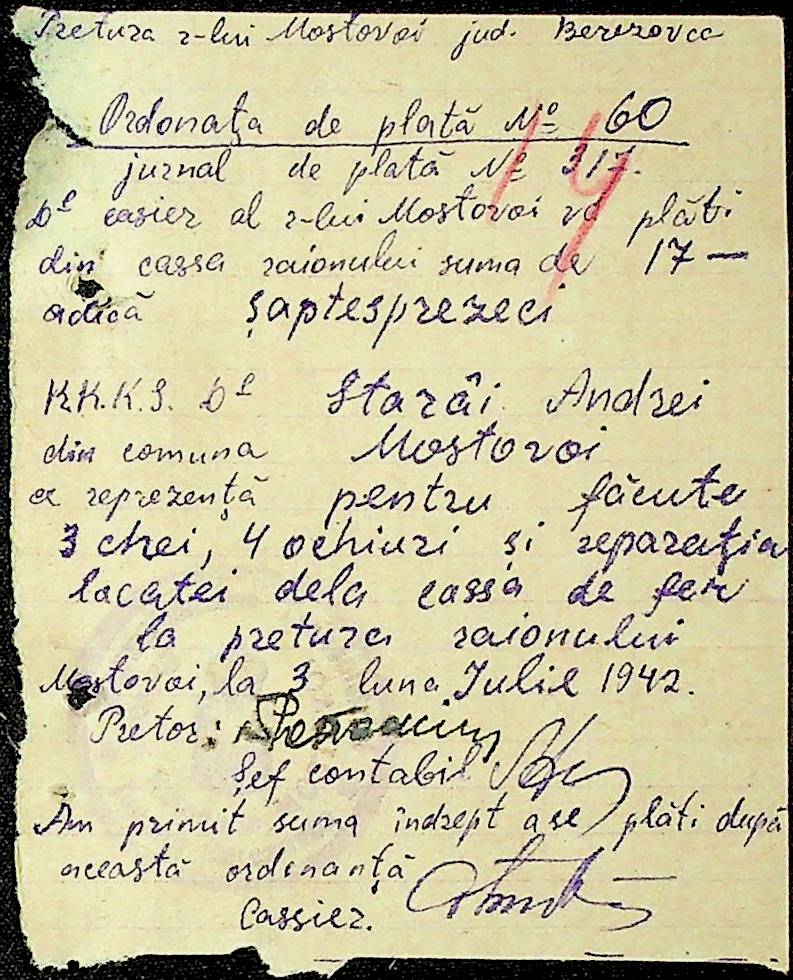 Pretura r-lui Mostovoi jud. Berezovca
Ordonața de plată № 60
jurnal de plată № 317.
Dl casier al r-lui Mostovoi va plăti
din cassa raionului suma de 17 —
adică șaptesprezeci
R.K.K.S. Dl Starâi Andrei
din comuna Mostovoi
ce reprezență pentru făcute
3 chei, 4 ochiuri și reparația
lacatei dela cassa de fer
la pretura raionului
Mostovoi, la 3 luna Iulie 1942.
Pretor:
Șef contabil
Am primit suma îndrept a se plăti după
această ordinanță
Cassier.